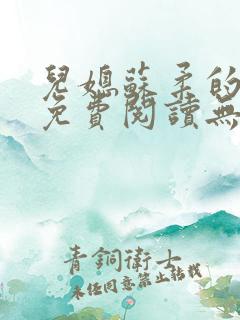 兒媳蘇柔的
免費閱讀無
青銅衛士
未經同意禁止轉載